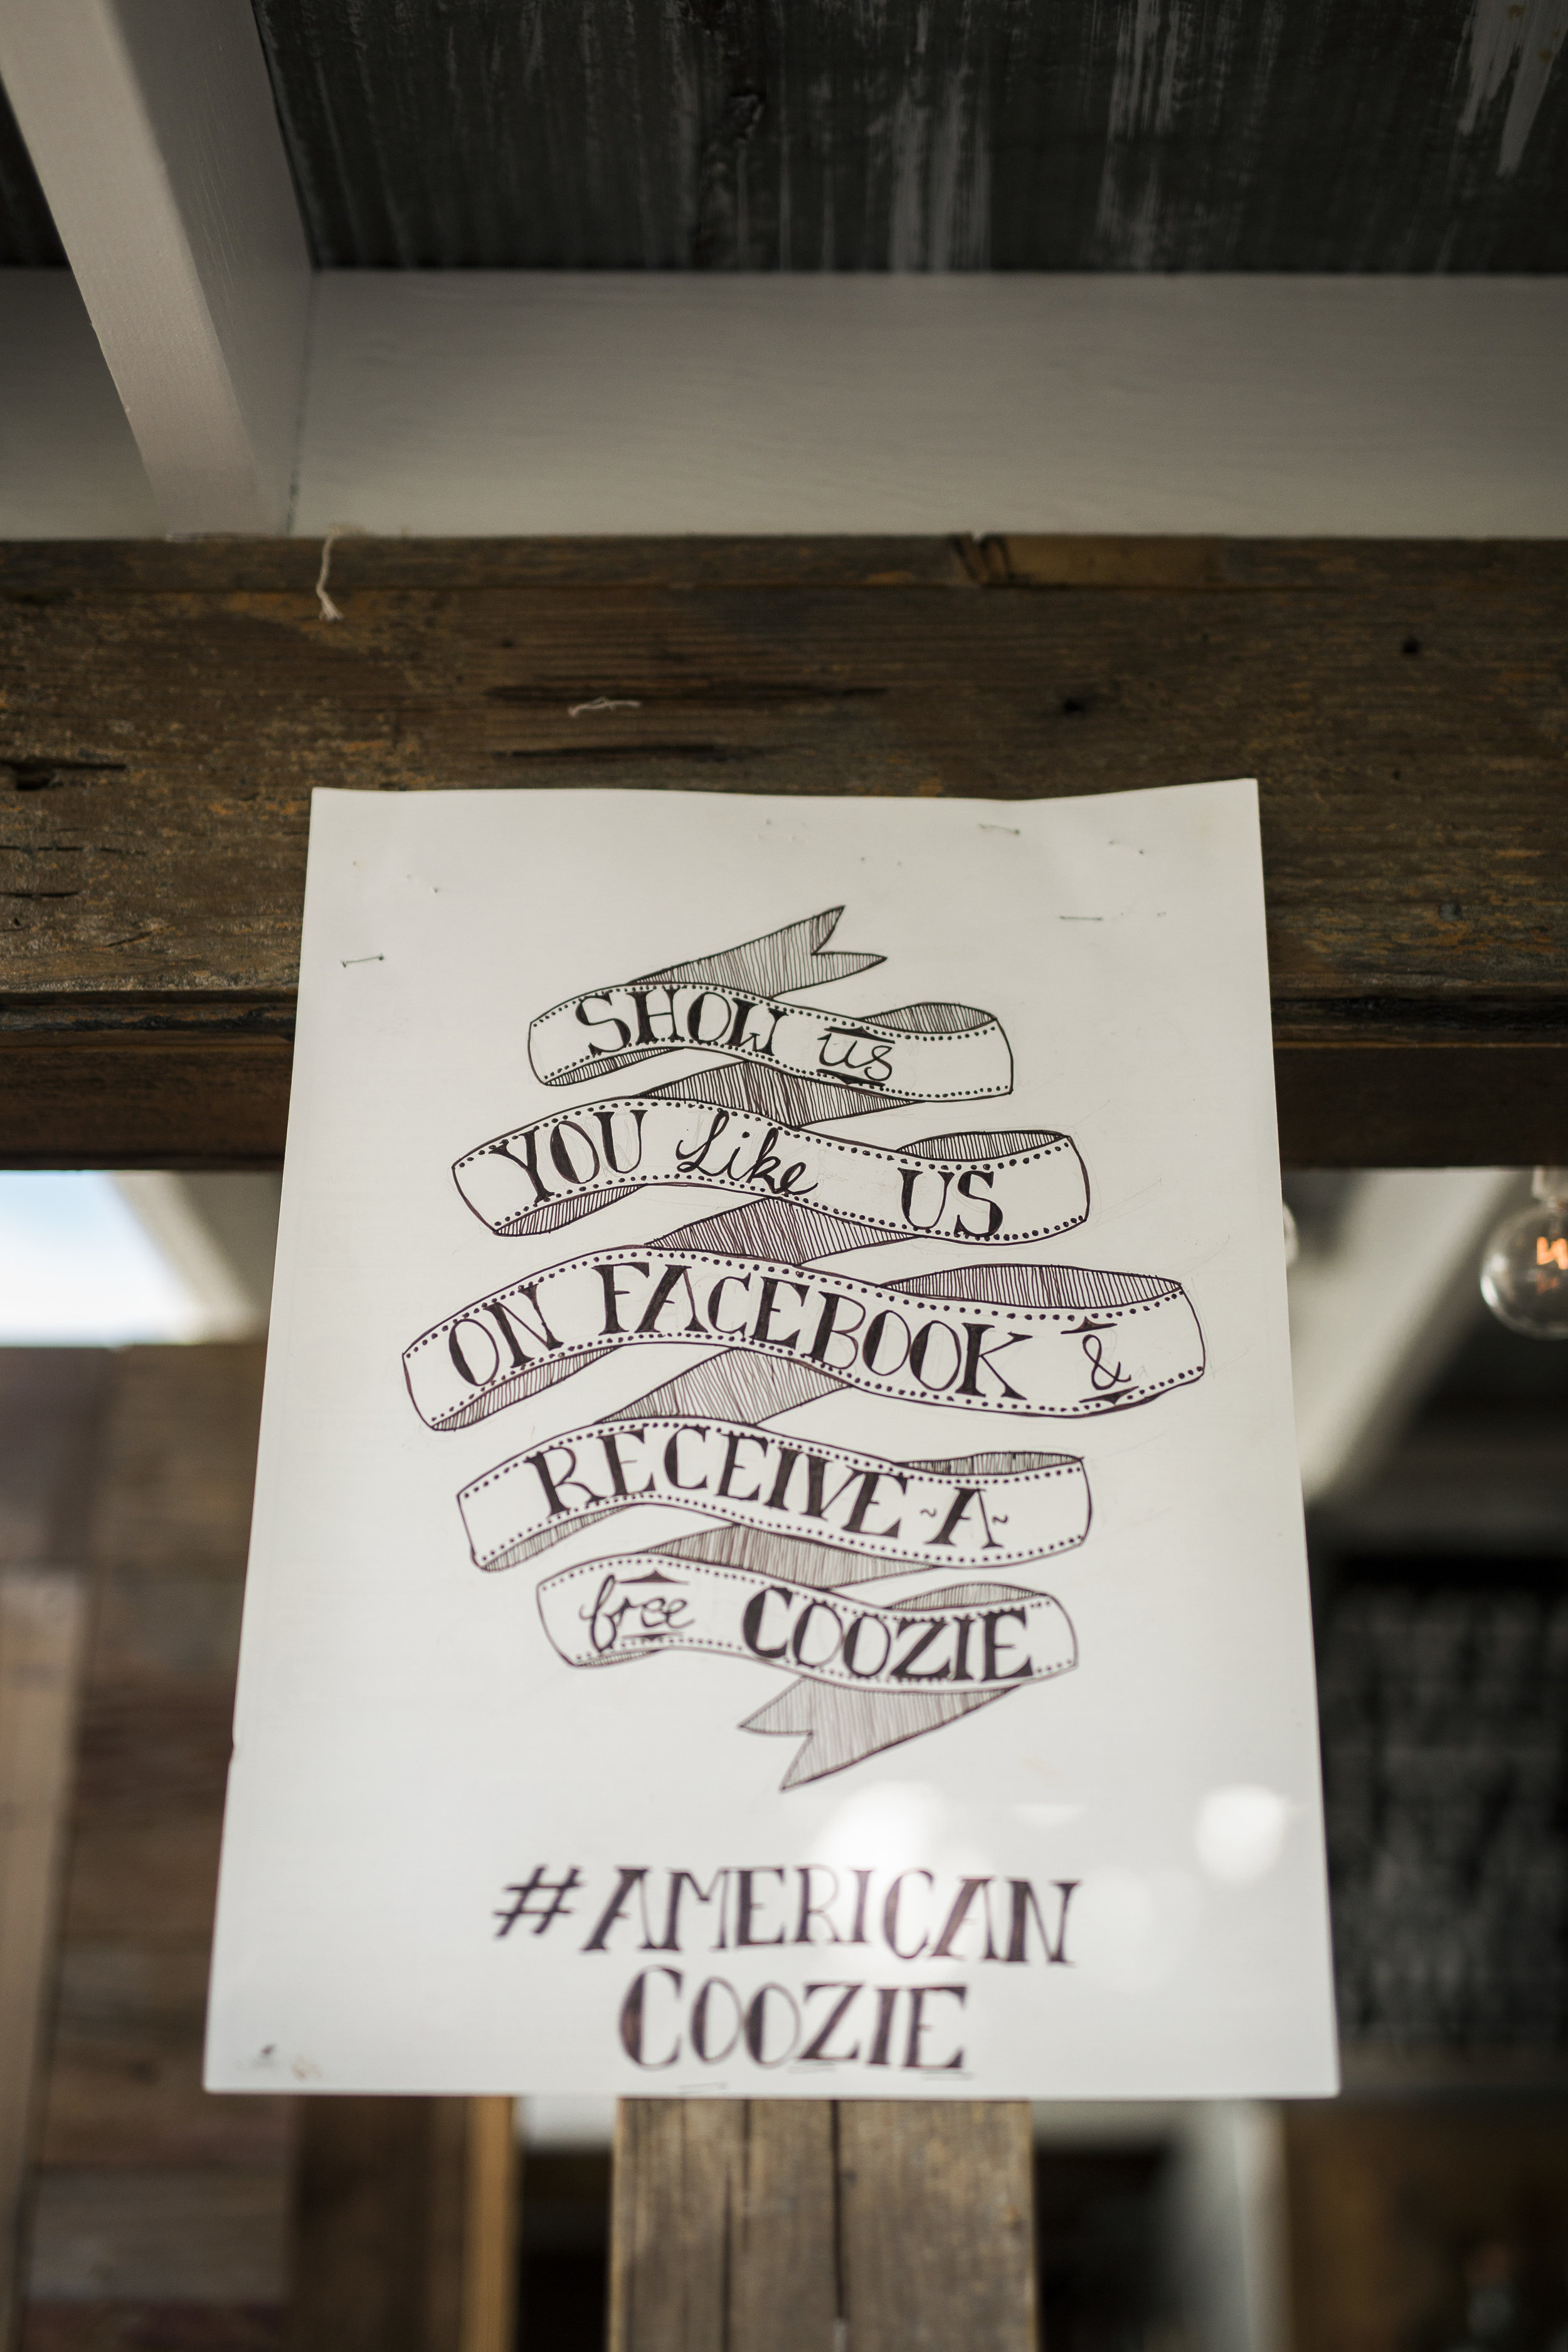 SHOW us
YOU Like US
ON FACEBOOK &
RECEIVE ~A~
free COOZIE
#AMERICAN
COOZIE